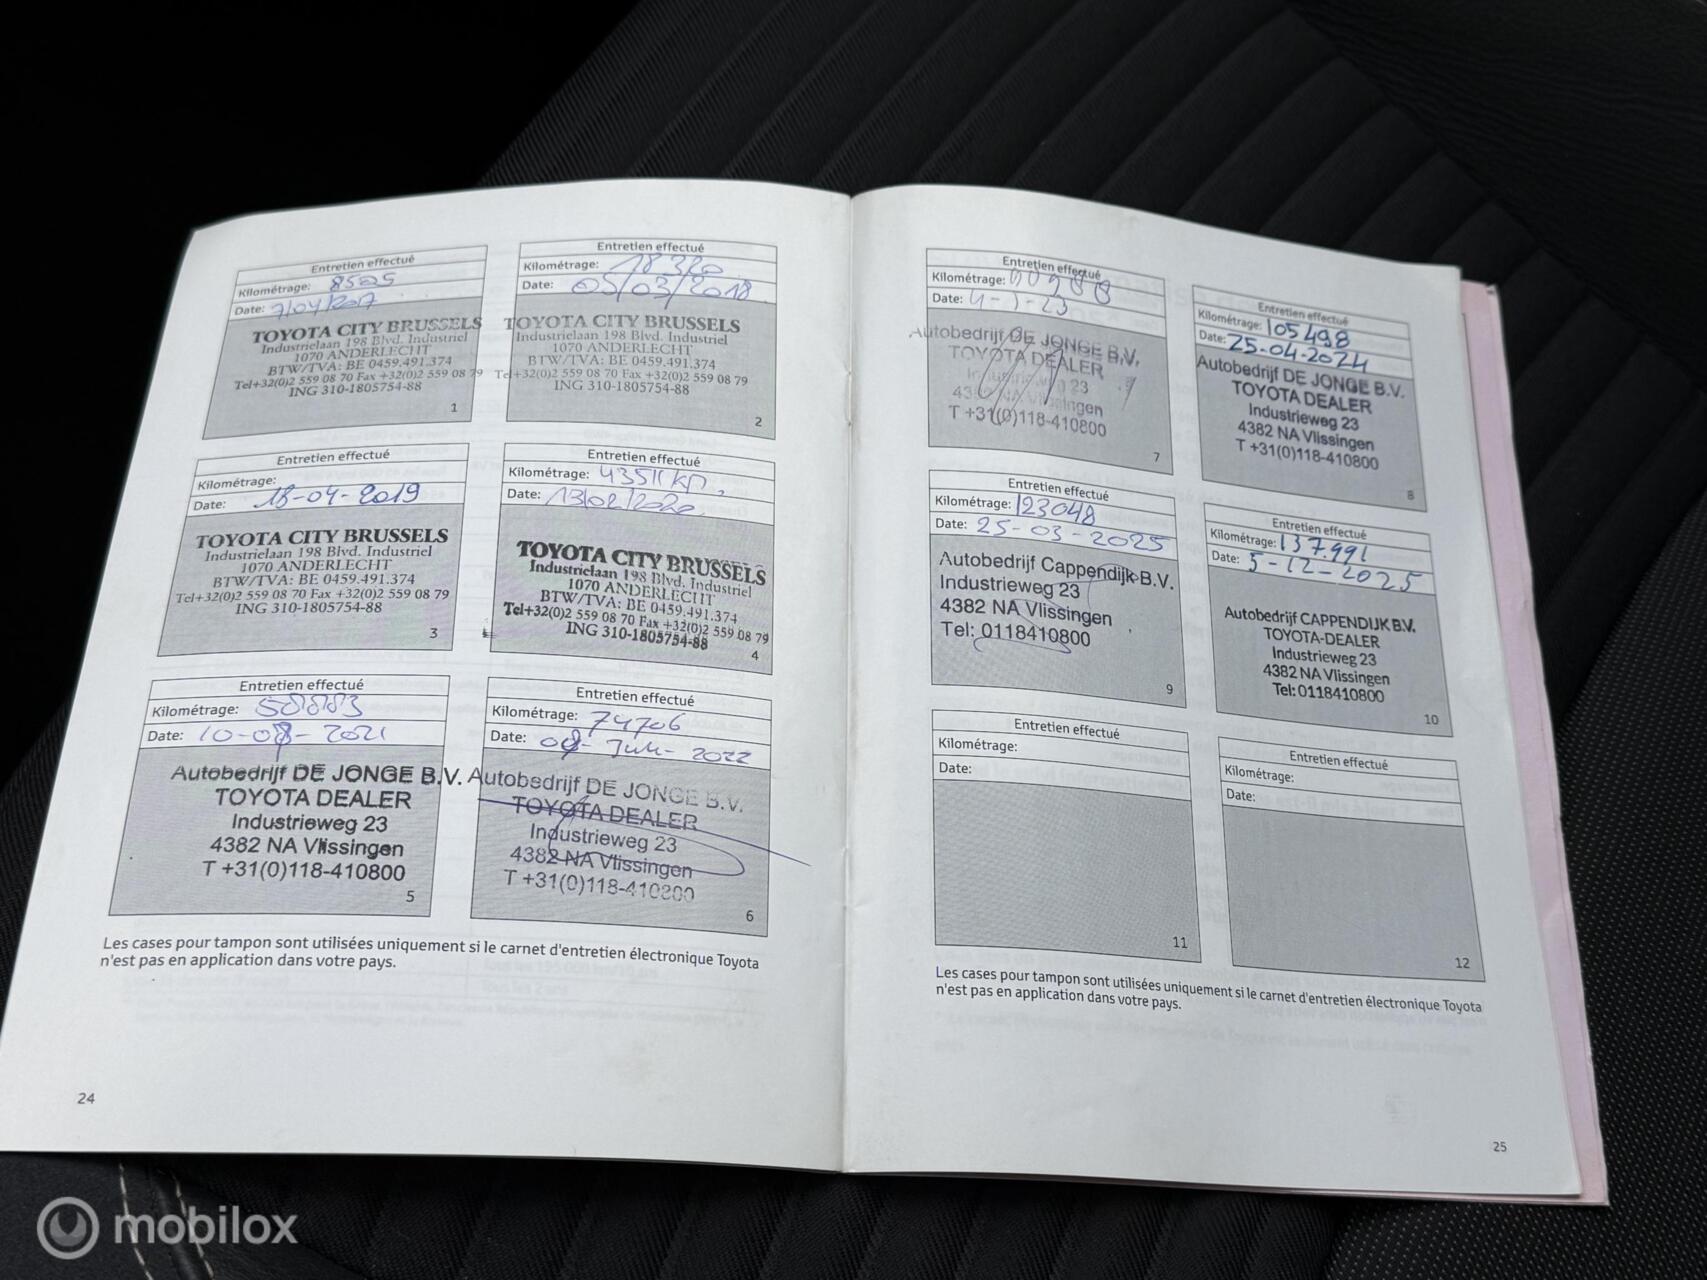 Entretien effectué
Kilométrage: 8505
Date: 7/04/2017
TOYOTA CITY BRUSSELS
Industrielaan 198 Blvd. Industriel
1070 ANDERLECHT
BTW/TVA: BE 0459.491.374
Tel+32(0)2 559 08 70 Fax +32(0)2 559 08 79
ING 310-1805754-88
1
Entretien effectué
Kilométrage: 18320
Date: 05/03/2018
TOYOTA CITY BRUSSELS
Industrielaan 198 Blvd. Industriel
1070 ANDERLECHT
BTW/TVA: BE 0459.491.374
Tel+32(0)2 559 08 70 Fax +32(0)2 559 08 79
ING 310-1805754-88
2
Entretien effectué
Kilométrage:
Date: 18-04-2019
TOYOTA CITY BRUSSELS
Industrielaan 198 Blvd. Industriel
1070 ANDERLECHT
BTW/TVA: BE 0459.491.374
Tel+32(0)2 559 08 70 Fax +32(0)2 559 08 79
ING 310-1805754-88
3
Entretien effectué
Kilométrage:
Date: 13/02/2020
TOYOTA CITY BRUSSELS
Industrielaan 198 Blvd. Industriel
1070 ANDERLECHT
BTW/TVA: BE 0459.491.374
Tel+32(0)2 559 08 70 Fax +32(0)2 559 08 79
ING 310-1805754-88
4
Entretien effectué
Kilométrage:
Date: 10-08-2021
Autobedrijf DE JONGE B.V.
TOYOTA DEALER
Industrieweg 23
4382 NA Vlissingen
T +31(0)118-410800
5
Entretien effectué
Kilométrage: 74706
Date: 2022
Autobedrijf DE JONGE B.V.
TOYOTA DEALER
Industrieweg 23
4382 NA Vlissingen
T +31(0)118-410800
6
Les cases pour tampon sont utilisées uniquement si le carnet d'entretien électronique Toyota
n'est pas en application dans votre pays.
24
Entretien effectué
Kilométrage:
Date:
Autobedrijf DE JONGE B.V.
TOYOTA DEALER
Industrieweg 23
4382 NA Vlissingen
T +31(0)118-410800
7
Entretien effectué
Kilométrage: 105498
Date: 25-04-2024
Autobedrijf DE JONGE B.V.
TOYOTA DEALER
Industrieweg 23
4382 NA Vlissingen
T +31(0)118-410800
8
Entretien effectué
Kilométrage: 123048
Date: 25-03-2025
Autobedrijf Cappendijk B.V.
Industrieweg 23
4382 NA Vlissingen
Tel: 0118410800
9
Entretien effectué
Kilométrage: 137.991
Date: 5-12-2025
Autobedrijf CAPPENDIJK B.V.
TOYOTA-DEALER
Industrieweg 23
4382 NA Vlissingen
Tel: 0118410800
10
Entretien effectué
Kilométrage:
Date:
11
Entretien effectué
Kilométrage:
Date:
12
Les cases pour tampon sont utilisées uniquement si le carnet d'entretien électronique Toyota
n'est pas en application dans votre pays.
25
mobilox